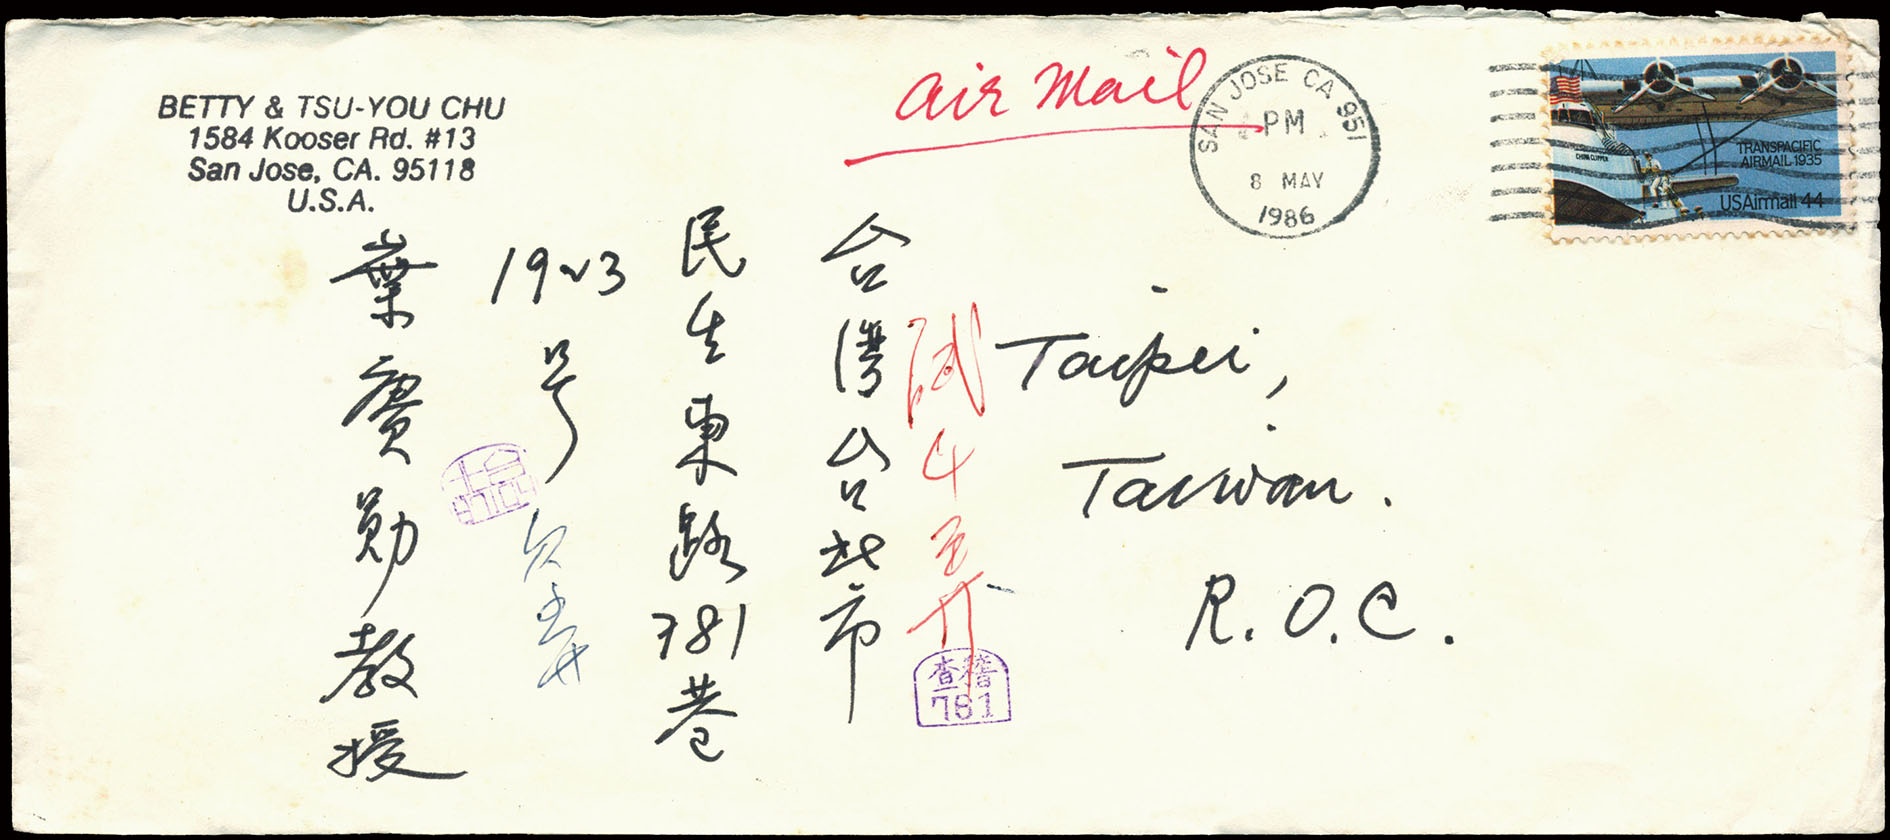 BETTY & TSU-YOU CHU
1584 Kooser Rd. #13
San Jose, CA. 95118
U.S.A.
Air Mail
SAN JOSE CA 951
PM
8 MAY
1986
CHINA CLIPPER
TRANSPACIFIC
AIRMAIL 1935
USAirmail 44
Taipei,
Taiwan.
R.O.C.
台灣台北市
民生東路781巷
19~3号
葉賡勛教授
稽查
781